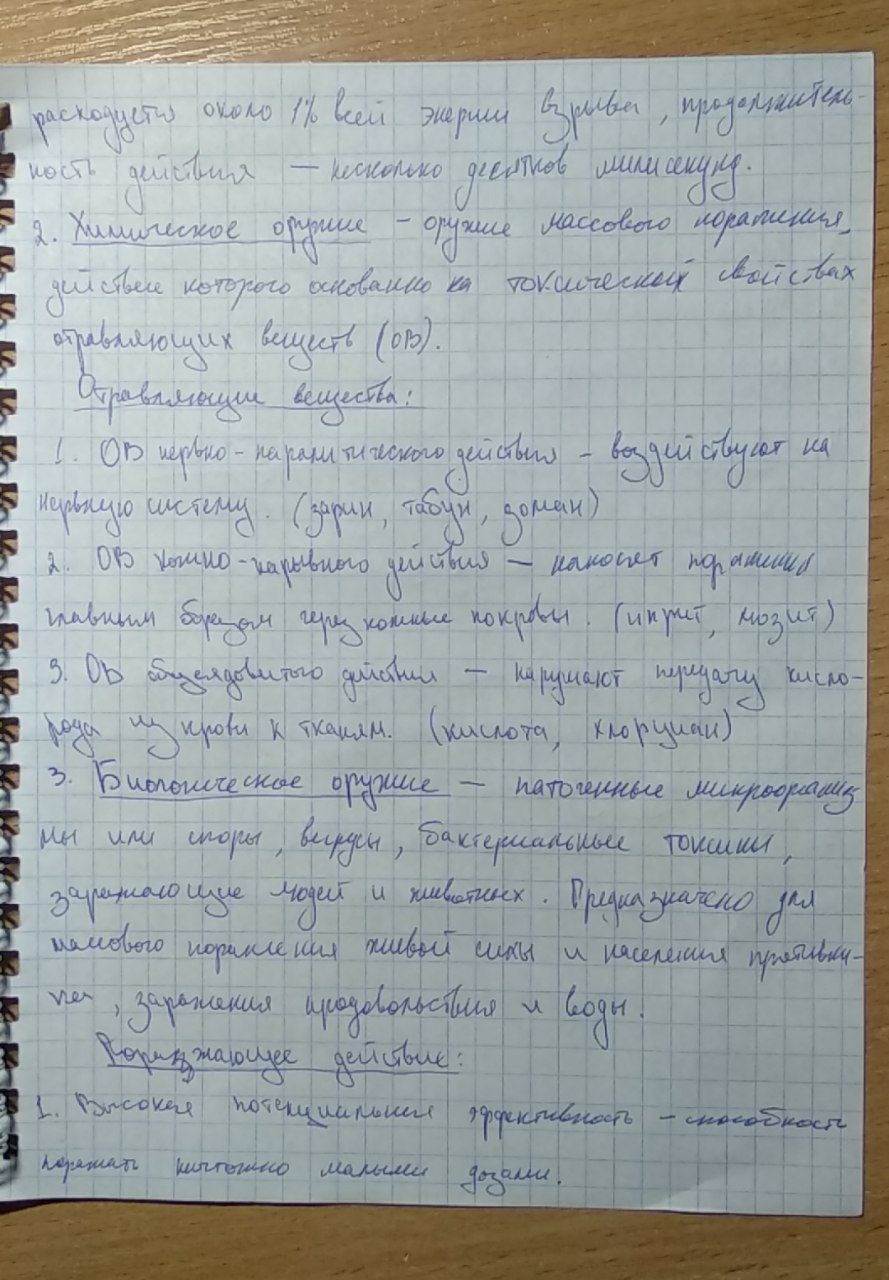 расходуется около 1% всей энергии взрыва, продолжитель-
ность действия – несколько десятков милисекунд.
2. Химическое оружие – оружие массового поражения,
действие которого основанно на токсической свойствах
отравляющих веществ (ОВ).
Отравляющие вещества:
1. ОВ нервно-паралитического действия – воздействуют на
нервную систему. (зарин, табун, зоман)
2. ОВ кожно-нарывного действия – наносят поражение
главным борезом через кожные покровы. (иприт, люзит)
3. ОВ общеядовитого действия – нарушают передачу кисло-
рода из крови к тканям. (кислота, хлорциан)
3. Биологическое оружие – патогенные микроорганиз
мы или споры, вирусы, бактериальные токсины,
заражающие людей и животных. Предназначено для
массового поражения живой силы и населения противни-
ка, заражения продовольствия и воды.
Поражающее действие:
1. Высокая потенциальная эффективность – способность
поражать ничтожно малыми дозами.